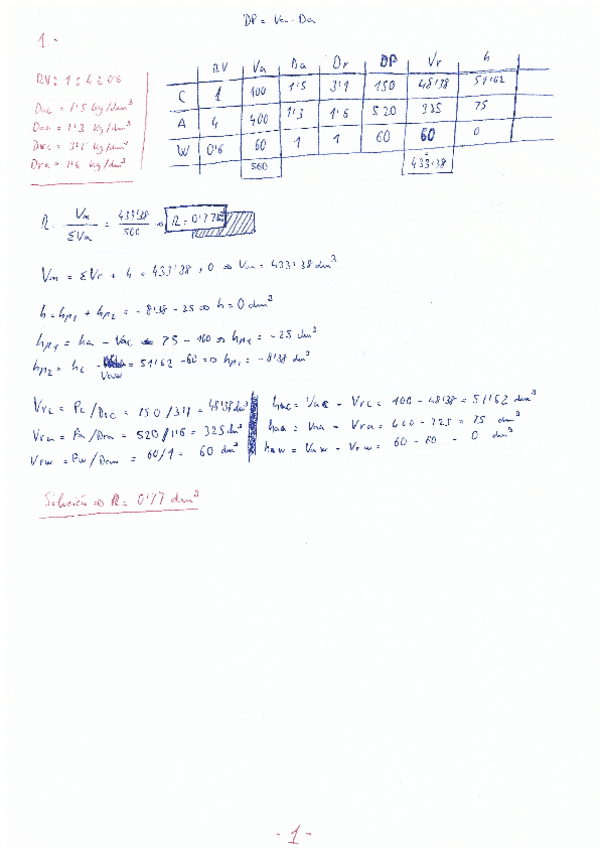 DP = Va · Da
1.-
RV = 1 : 4 : 0'6
Dac = 1'5 kg/dm³
Daa = 1'3 kg/dm³
Drc = 3'1 kg/dm³
Dra = 1'6 kg/dm³
RV Va Da Dr DP Vr h
C 1 100 1'5 3'1 150 48'38 51'62
A 4 400 1'3 1'6 520 325 75
W 0'6 60 1 1 60 60 0
560 433'38
R = Vm / ΣVa = 433'38 / 560 ⇒ R = 0'77
Vm = ΣVr + h = 433'38 + 0 ⇒ Vm = 433'38 dm³
h = hp1 + hp2 = -8'38 - 25 ⇒ h = 0 dm³
hp1 = ha - Vac ⇒ 75 - 100 ⇒ hp1 = -25 dm³
hp2 = hc - Vaw = 51'62 - 60 ⇒ hp2 = -8'38 dm³
Vrc = Pc/Drc = 150/3'1 = 48'38 dm³
Vra = Pa/Dra = 520/1'6 = 325 dm³
Vrw = Pw/Drw = 60/1 = 60 dm³
hac = Vac - Vrc = 100 - 48'38 = 51'62 dm³
haa = Vaa - Vra = 400 - 325 = 75 dm³
haw = Vaw - Vrw = 60 - 60 = 0 dm³
Solución ⇒ R = 0'77 dm³
- 1 -